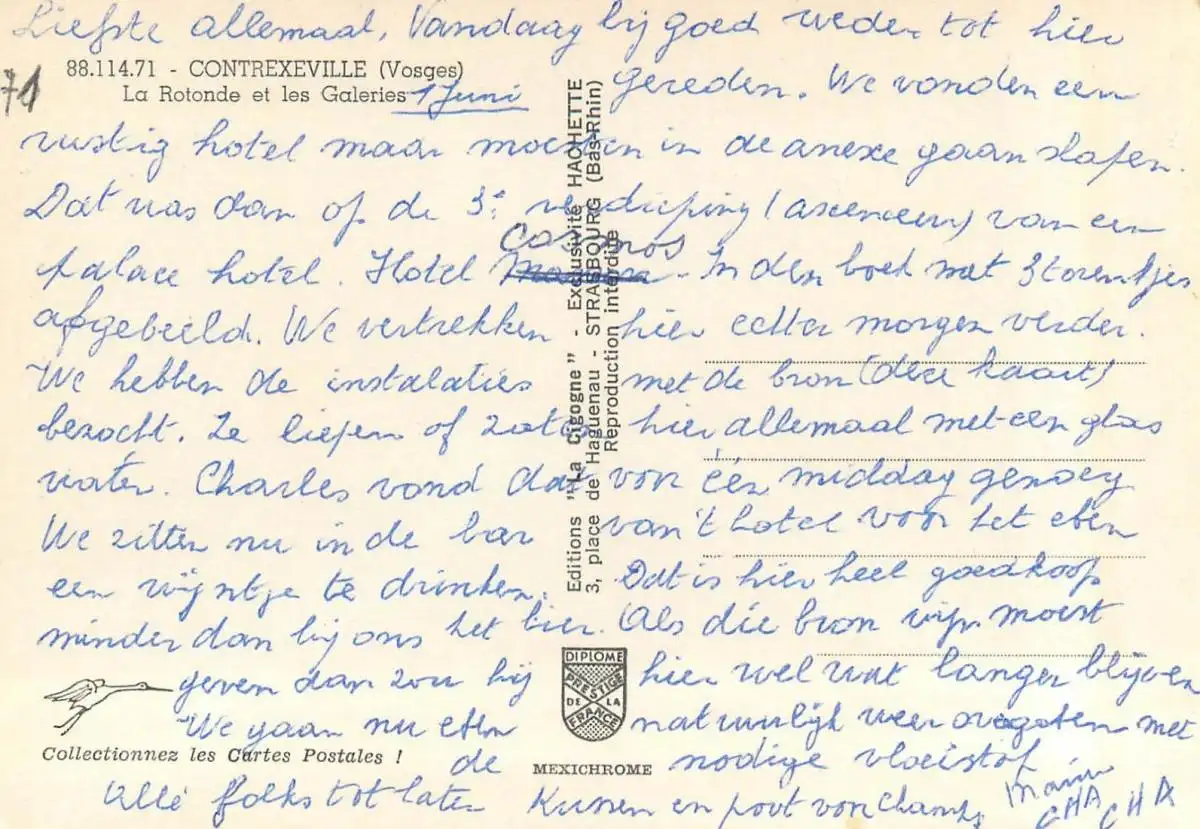 Liefste allemaal, Vandaag bij goed weder tot hier
88.114.71 - CONTREXEVILLE (Vosges)
La Rotonde et les Galeries 1 Juni
71
gereden. We vonden een
rustig hotel maar moesten in de anexe gaan slapen.
Dat was dan op de 3e verdieping (ascenseur) van een
palace hotel. Hotel Cosmos. In den boek met 3 torentjes
afgebeeld. We vertrekken hier echter morgen verder.
We hebben de instalaties met de bron (deze kaart)
bezocht. Ze liepen of zaten hier allemaal met een glas
water. Charles vond dat voor één middag genoeg
We zitten nu in de bar van 't hotel voor het eten
een wijntje te drinken. Dat is hier heel goedkoop
minder dan bij ons het bier. Als die bron wijn moest
geven dan zou hij hier wel wat langer blijven
We gaan nu eten natuurlijk weer overgoten met
de nodige vloeistof
Allé folks tot later Kussen en poot von
CHA CHA
Editions "La Cigogne" - Exclusivité HACHETTE
3, place de Haguenau - STRASBOURG (Bas-Rhin)
Reproduction interdite
DIPLOME
PRESTIGE
DE LA
FRANCE
Collectionnez les Cartes Postales !
MEXICHROME